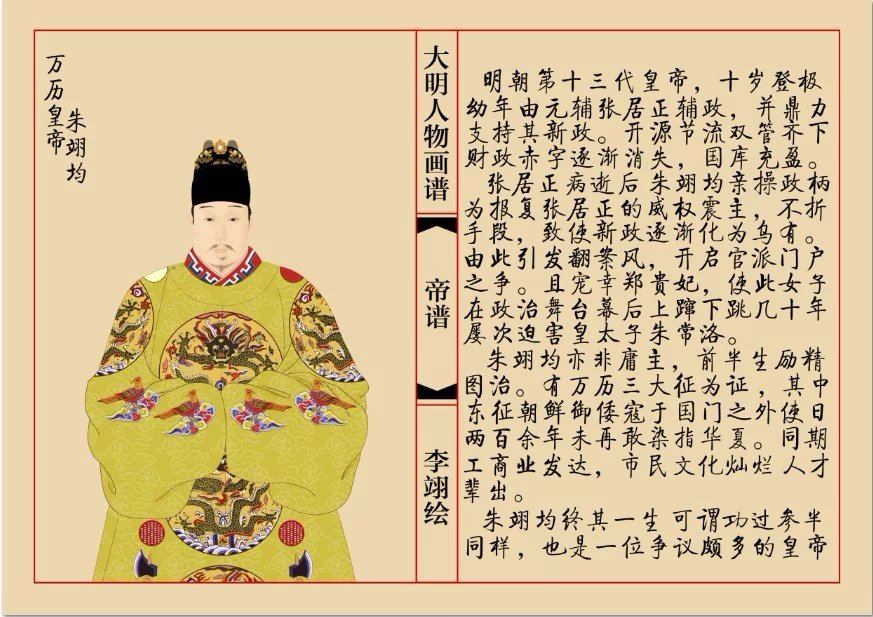 万历皇帝
朱翊钧
大明人物画谱
帝谱
李翊绘
明朝第十三代皇帝，十岁登极
幼年由元辅张居正辅政，并鼎力
支持其新政。开源节流双管齐下
财政赤字逐渐消失，国库充盈。
张居正病逝后朱翊均亲操政柄
为报复张居正的威权震主，不折
手段，致使新政逐渐化为乌有。
由此引发翻案风，开启官派门户
之争。且宠幸郑贵妃，使此女子
在政治舞台幕后上蹿下跳几十年
屡次迫害皇太子朱常洛。
朱翊均亦非庸主，前半生励精
图治。有万历三大征为证，其中
东征朝鲜御倭寇于国门之外使日
两百余年未再敢染指华夏。同期
工商业发达，市民文化灿烂人才
辈出。
朱翊均终其一生可谓功过参半
同样，也是一位争议颇多的皇帝